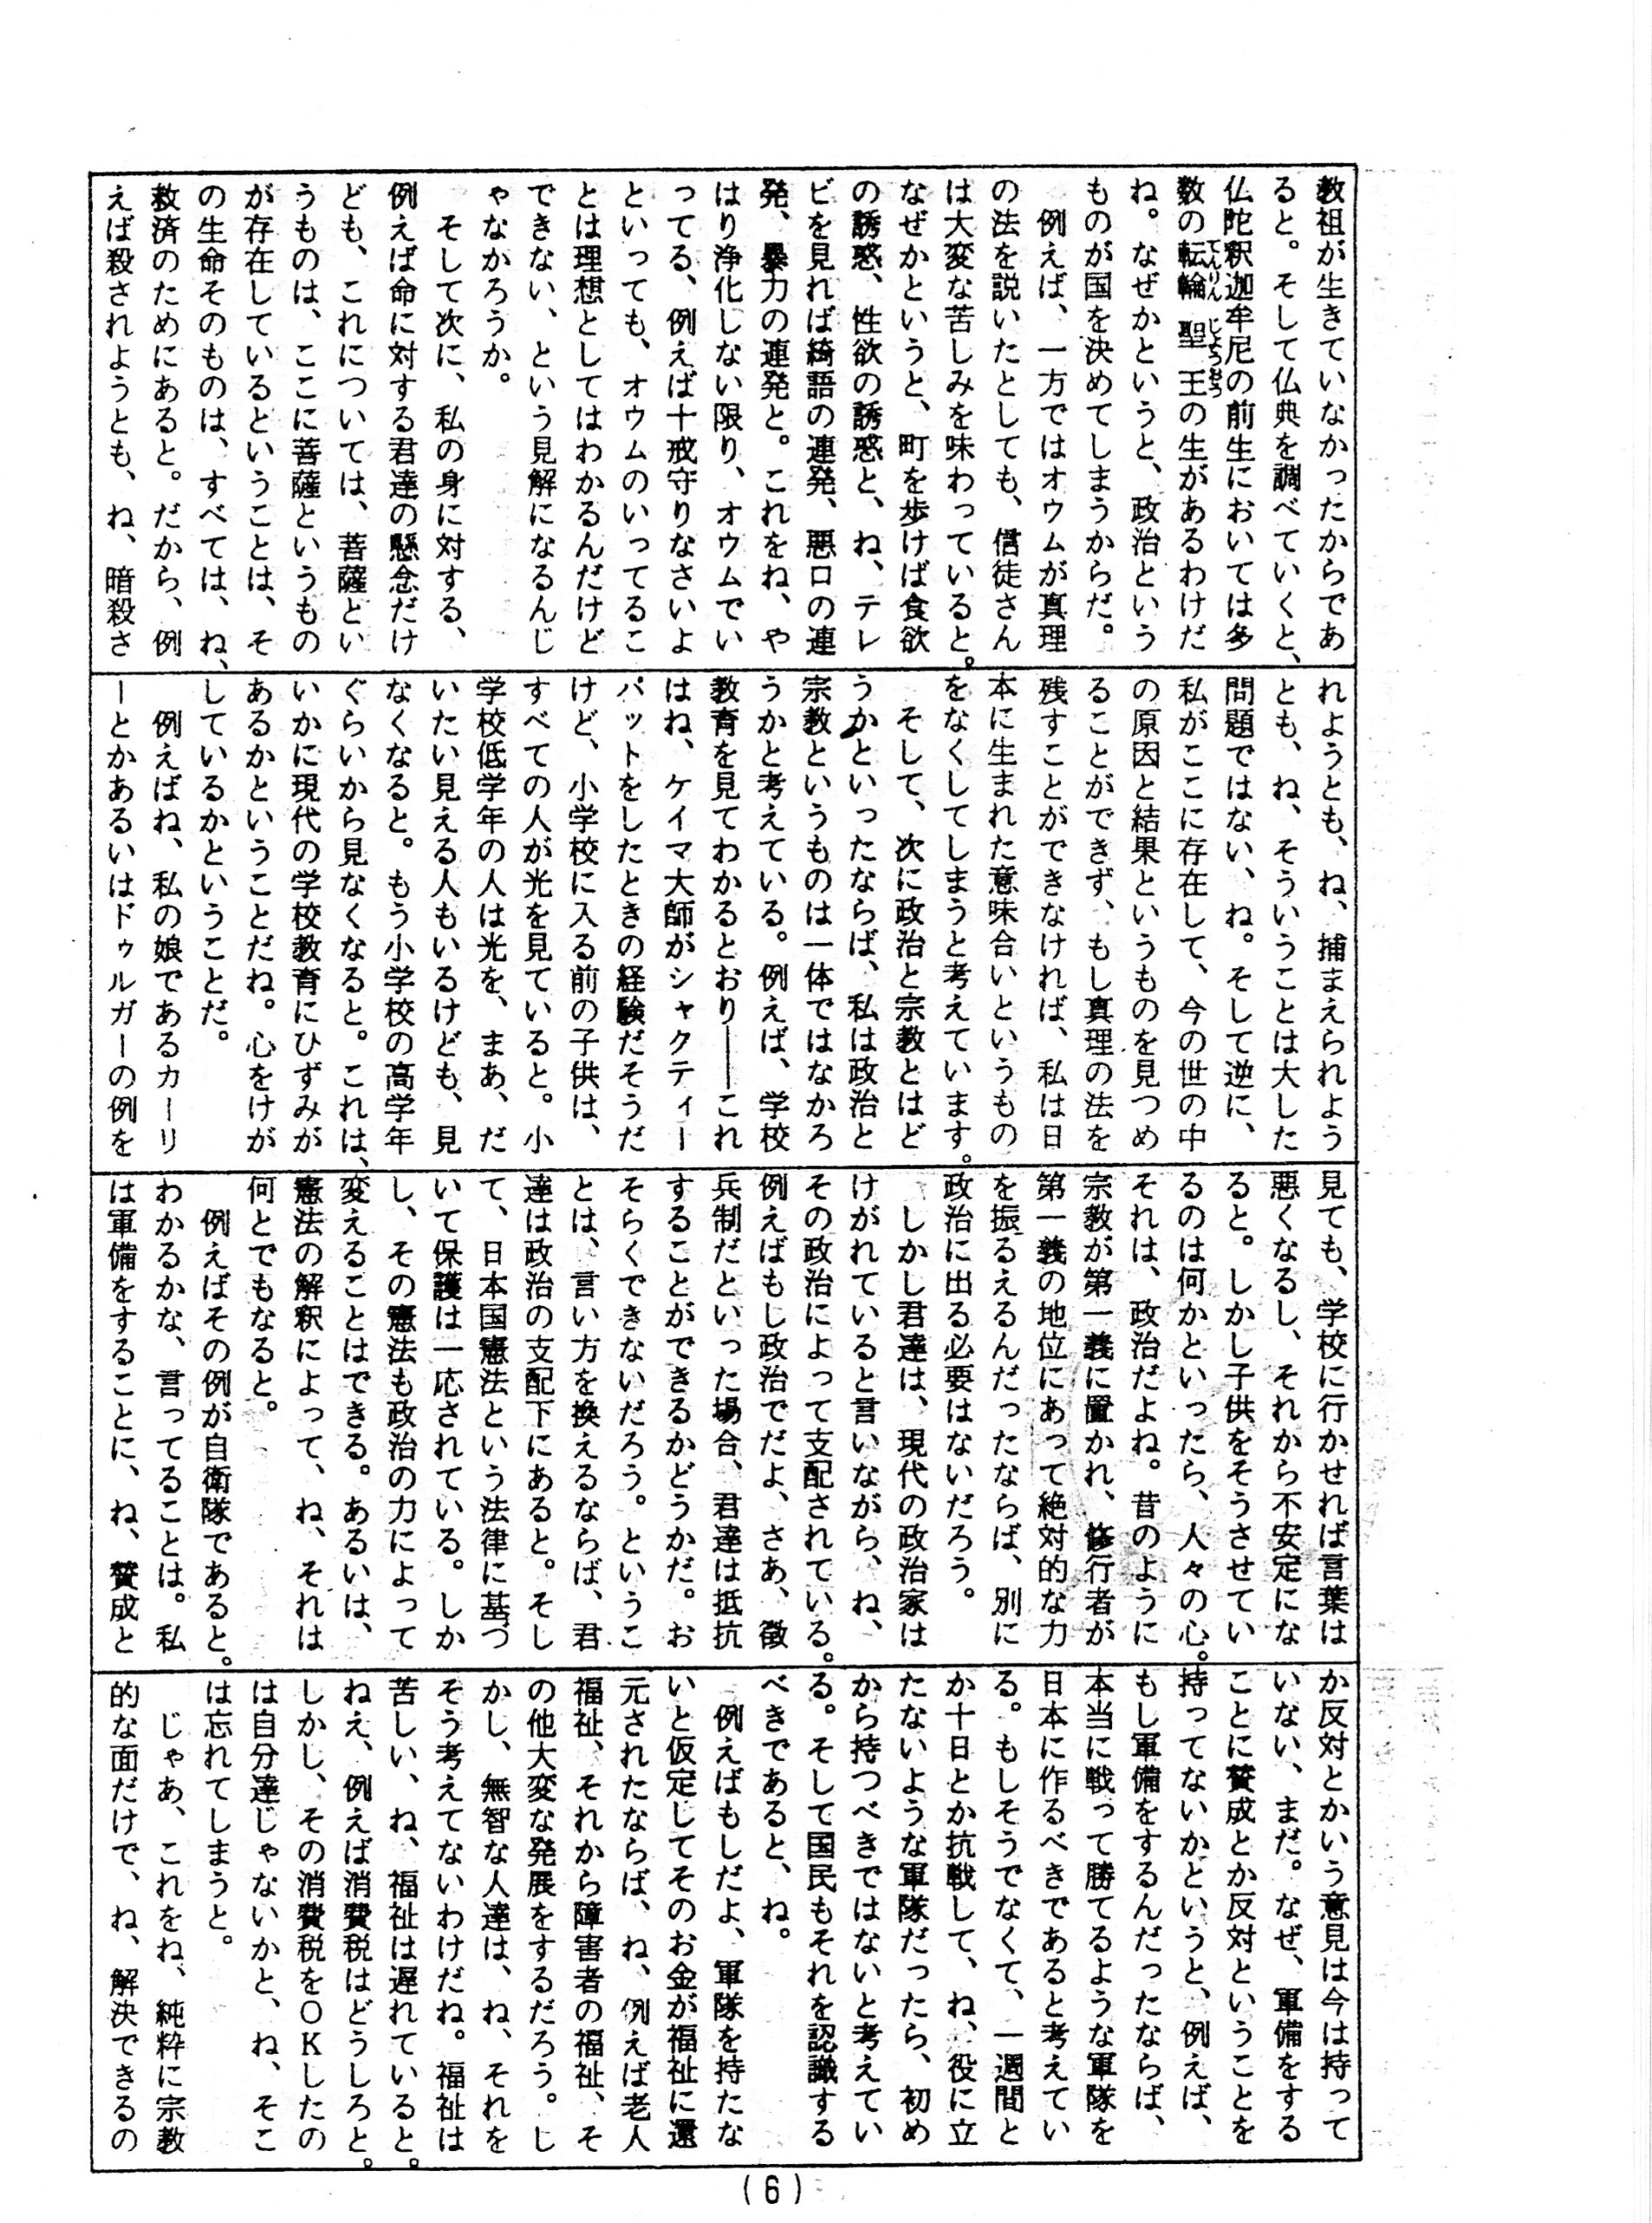 教祖が生きていなかったからであ
ると。そして仏典を調べていくと、
仏陀釈迦牟尼の前生においては多
数の転輪聖王の生があるわけだ
ね。なぜかというと、政治という
ものが国を決めてしまうからだ。
例えば、一方ではオウムが真理
の法を説いたとしても、信徒さん
は大変な苦しみを味わっていると。
なぜかというと、町を歩けば食欲
の誘惑、性欲の誘惑と、ね、テレ
ビを見れば綺語の連発、悪口の連
発、暴力の連発と。これをね、や
はり浄化しない限り、オウムでい
ってる、例えば十戒守りなさいよ
といっても、オウムのいってるこ
とは理想としてはわかるんだけど
できない、という見解になるんじ
ゃなかろうか。
そして次に、私の身に対する、
例えば命に対する君達の懸念だけ
ども、これについては、菩薩とい
うものは、ここに菩薩というもの
が存在しているということは、そ
の生命そのものは、すべては、ね、
救済のためにあると。だから、例
えば殺されようとも、ね、暗殺さ
れようとも、ね、捕まえられよう
とも、ね、そういうことは大した
問題ではない、ね。そして逆に、
私がここに存在して、今の世の中
の原因と結果というものを見つめ
ることができず、もし真理の法を
残すことができなければ、私は日
本に生まれた意味合いというもの
をなくしてしまうと考えています。
そして、次に政治と宗教とはど
うかといったならば、私は政治と
宗教というものは一体ではなかろ
うかと考えている。例えば、学校
教育を見てわかるとおり──これ
はね、ケイマ大師がシャクティー
パットをしたときの経験だそうだ
けど、小学校に入る前の子供は、
すべての人が光を見ていると。小
学校低学年の人は光を、まあ、だ
いたい見える人もいるけども、見
なくなると。もう小学校の高学年
ぐらいから見なくなると。これは、
いかに現代の学校教育にひずみが
あるかということだね。心をけが
しているかということだ。
例えばね、私の娘であるカーリ
ーとかあるいはドゥルガーの例を
見ても、学校に行かせれば言葉は
悪くなるし、それから不安定にな
ると。しかし子供をそうさせてい
るのは何かといったら、人々の心。
それは、政治だよね。昔のように
宗教が第一義に置かれ、修行者が
第一義の地位にあって絶対的な力
を振るえるんだったならば、別に
政治に出る必要はないだろう。
しかし君達は、現代の政治家は
けがれていると言いながら、ね、
その政治によって支配されている。
例えばもし政治でだよ、さあ、徴
兵制だといった場合、君達は抵抗
することができるかどうかだ。お
そらくできないだろう。というこ
とは、言い方を換えるならば、君
達は政治の支配下にあると。そし
て、日本国憲法という法律に基づ
いて保護は一応されている。しか
し、その憲法も政治の力によって
変えることはできる。あるいは、
憲法の解釈によって、ね、それは
何とでもなると。
例えばその例が自衛隊であると。
わかるかな、言ってることは。私
は軍備をすることに、ね、賛成と
か反対とかいう意見は今は持って
いない、まだ。なぜ、軍備をする
ことに賛成とか反対ということを
持ってないかというと、例えば、
もし軍備をするんだったならば、
本当に戦って勝てるような軍隊を
日本に作るべきであると考えてい
る。もしそうでなくて、一週間と
か十日とか抗戦して、ね、役に立
たないような軍隊だったら、初め
から持つべきではないと考えてい
る。そして国民もそれを認識する
べきであると、ね。
例えばもしだよ、軍隊を持たな
いと仮定してそのお金が福祉に還
元されたならば、ね、例えば老人
福祉、それから障害者の福祉、そ
の他大変な発展をするだろう。し
かし、無智な人達は、ね、それを
そう考えてないわけだね。福祉は
苦しい、ね、福祉は遅れていると。
ねえ、例えば消費税はどうしろと。
しかし、その消費税をOKしたの
は自分達じゃないかと、ね、そこ
は忘れてしまうと。
じゃあ、これをね、純粋に宗教
的な面だけで、ね、解決できるの
てんりんじょうおう
(6)